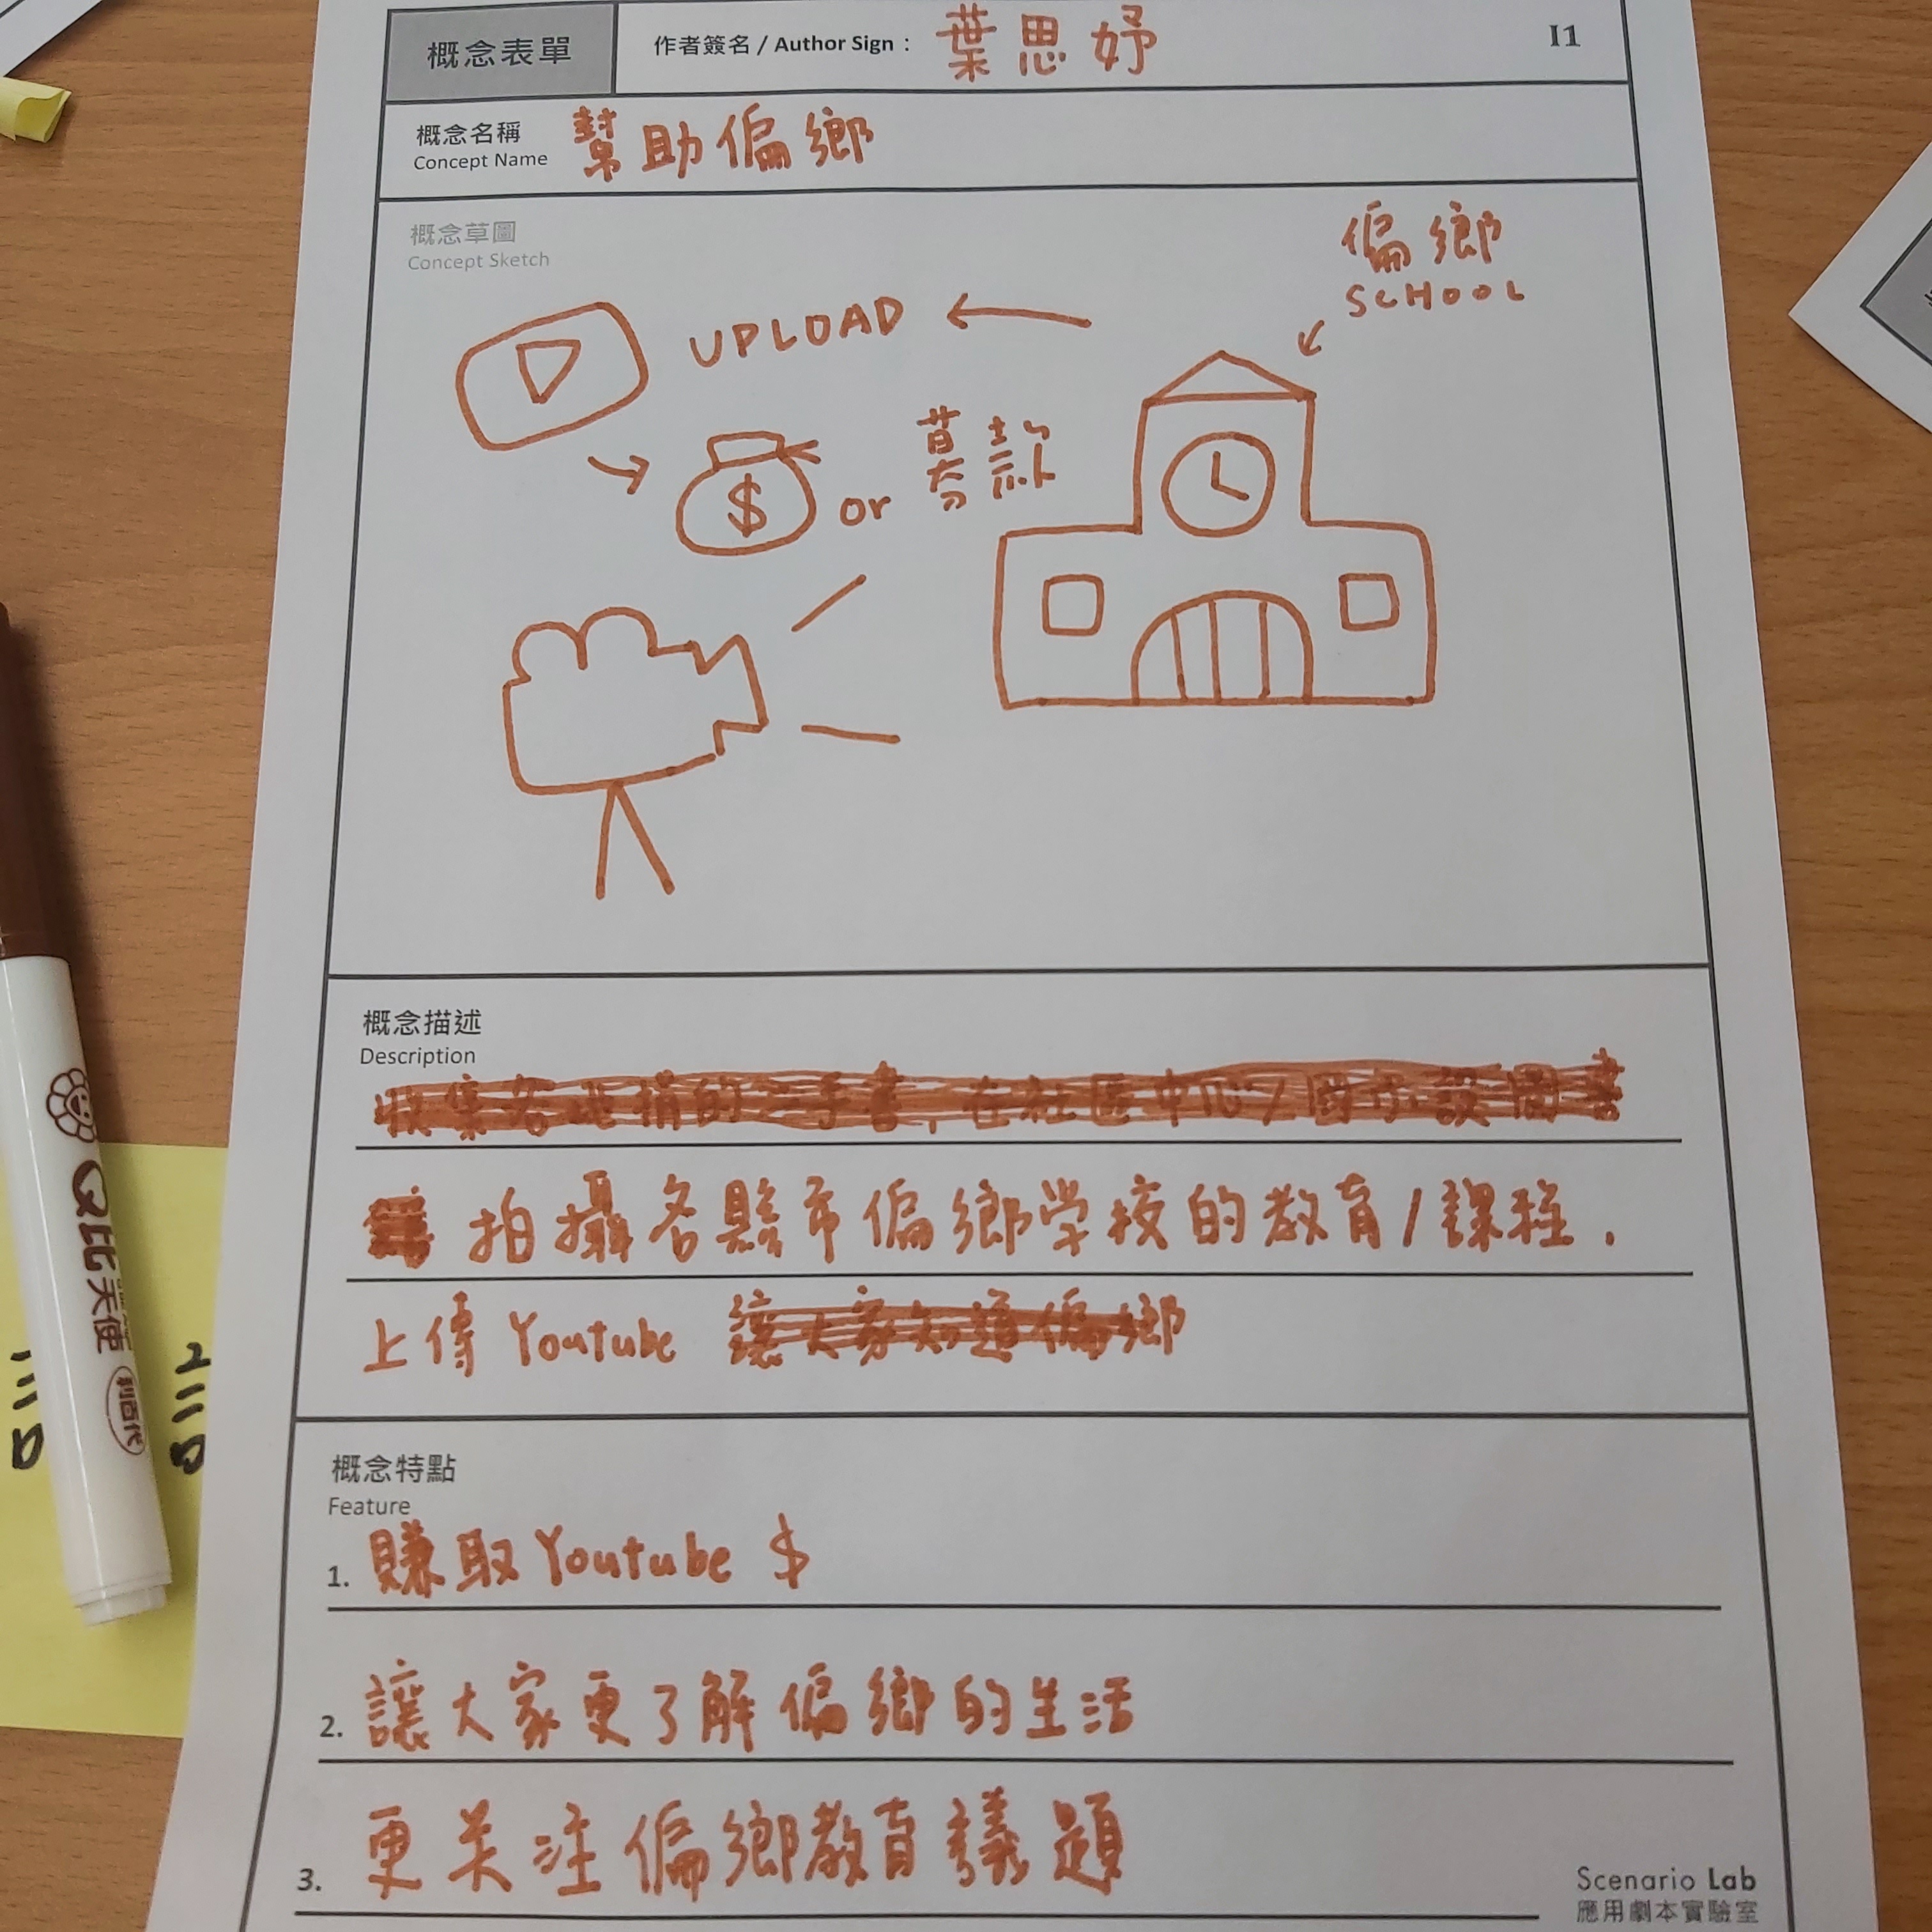 概念表單
作者簽名 / Author Sign : 葉思妤
I1
概念名稱
Concept Name
幫助偏鄉
概念草圖
Concept Sketch
偏鄉
SCHOOL
UPLOAD
$ or 募款
概念描述
Description
收集各地捐的二手書,在社區中心/國小設圖書
拍攝各縣市偏鄉学校的教育/課程.
上傳 Youtube 讓大家知道偏鄉
概念特點
Feature
1. 賺取 Youtube $
2. 讓大家更了解偏鄉的生活
3. 更关注偏鄉教育議題
Scenario Lab
應用劇本實驗室
Q比天使
利百代